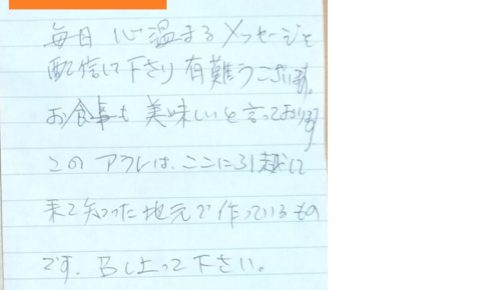 毎日 心温まるメッセージを
配信して下さり有難うございます。
お食事も美味しいと言っております
このアラレは、ここに引越して
来て知った地元で作っているもの
です。召し上って下さい。